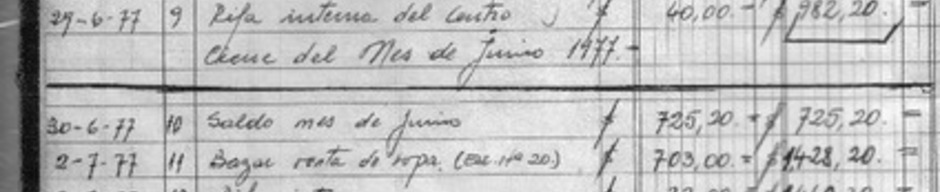 29-6-77 9 Rifa interna del Centro $ 40,00.- $ 982,20.-
Cierre del Mes de Junio 1977.-
30-6-77 10 Saldo mes de Junio $ 725,20.= $ 725,20.=
2-7-77 11 Bazar venta de ropa. (Exc. Nº 20.) $ 703,00.= $ 1428,20.=